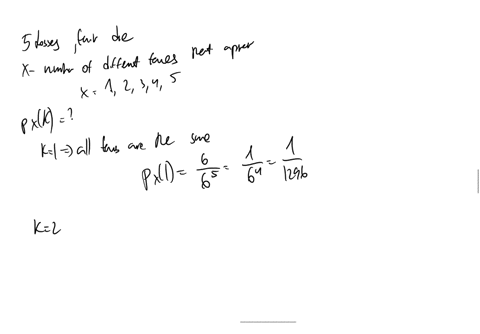 5 tosses, fair die
X- number of different faces that appear
x = 1, 2, 3, 4, 5
Px(k) = ?
k=1 => all faces are the same
Px(1) = 6/6^5 = 1/6^4 = 1/1296
k=2